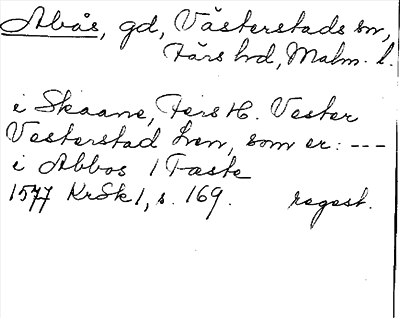 Abås, gd, Västerstads sn,
Färs hd, Malm. l.
i Skaane, Fers H. Vester
Vesterstad Sogn, som er: ---
i Abbos 1 Faste
1577 KrSk 1, s. 169. regest.